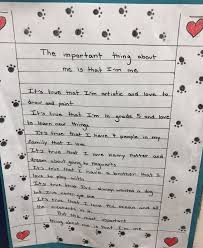 The important thing about
me is that I'm me
It's true that I'm artistic and love to
draw and paint
It's true that I'm in grade 5 and love
to learn new thing
It's true that I have 4 people in my
family that I love
It's true that I love Harry Potter and
dream about going to Hogwarts
It's true that I have a brother that I
love to play with
It's true that I've always wanted a dog
It's true that I love the ocean and all
the creatures in it
But the most important
thing about me is that I'm me